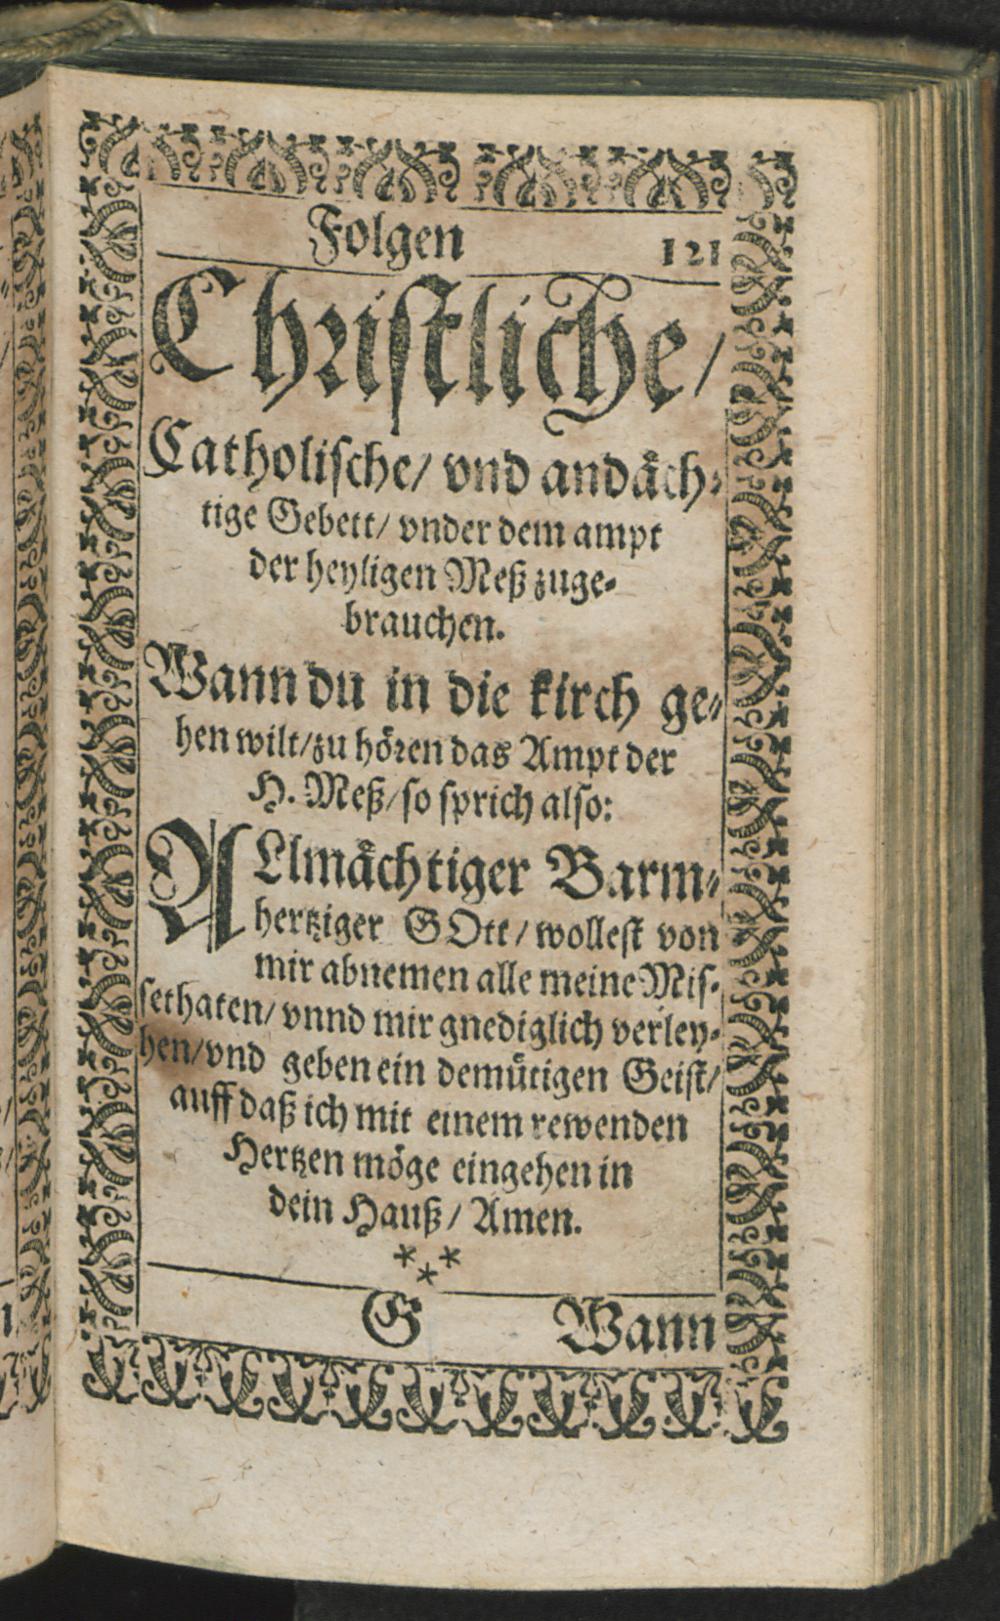 Folgen 121
Christliche/
Catholische/ vnd andaͤch⸗
tige Gebett/ vnder dem ampt
der heyligen Meß zuge⸗
brauchen.
Wann du in die kirch ge⸗
hen wilt/ zu hoͤren das Ampt der
H. Meß/ so sprich also:
ALlmaͤchtiger Barm⸗
hertziger GOtt/ wollest von
mir abnemen alle meine Mis⸗
sethaten/ vnnd mir gnediglich verley⸗
hen/ vnd geben ein demuͤtigen Geist/
auff daß ich mit einem rewenden
Hertzen moͤge eingehen in
dein Hauß/ Amen.
***
G Wann